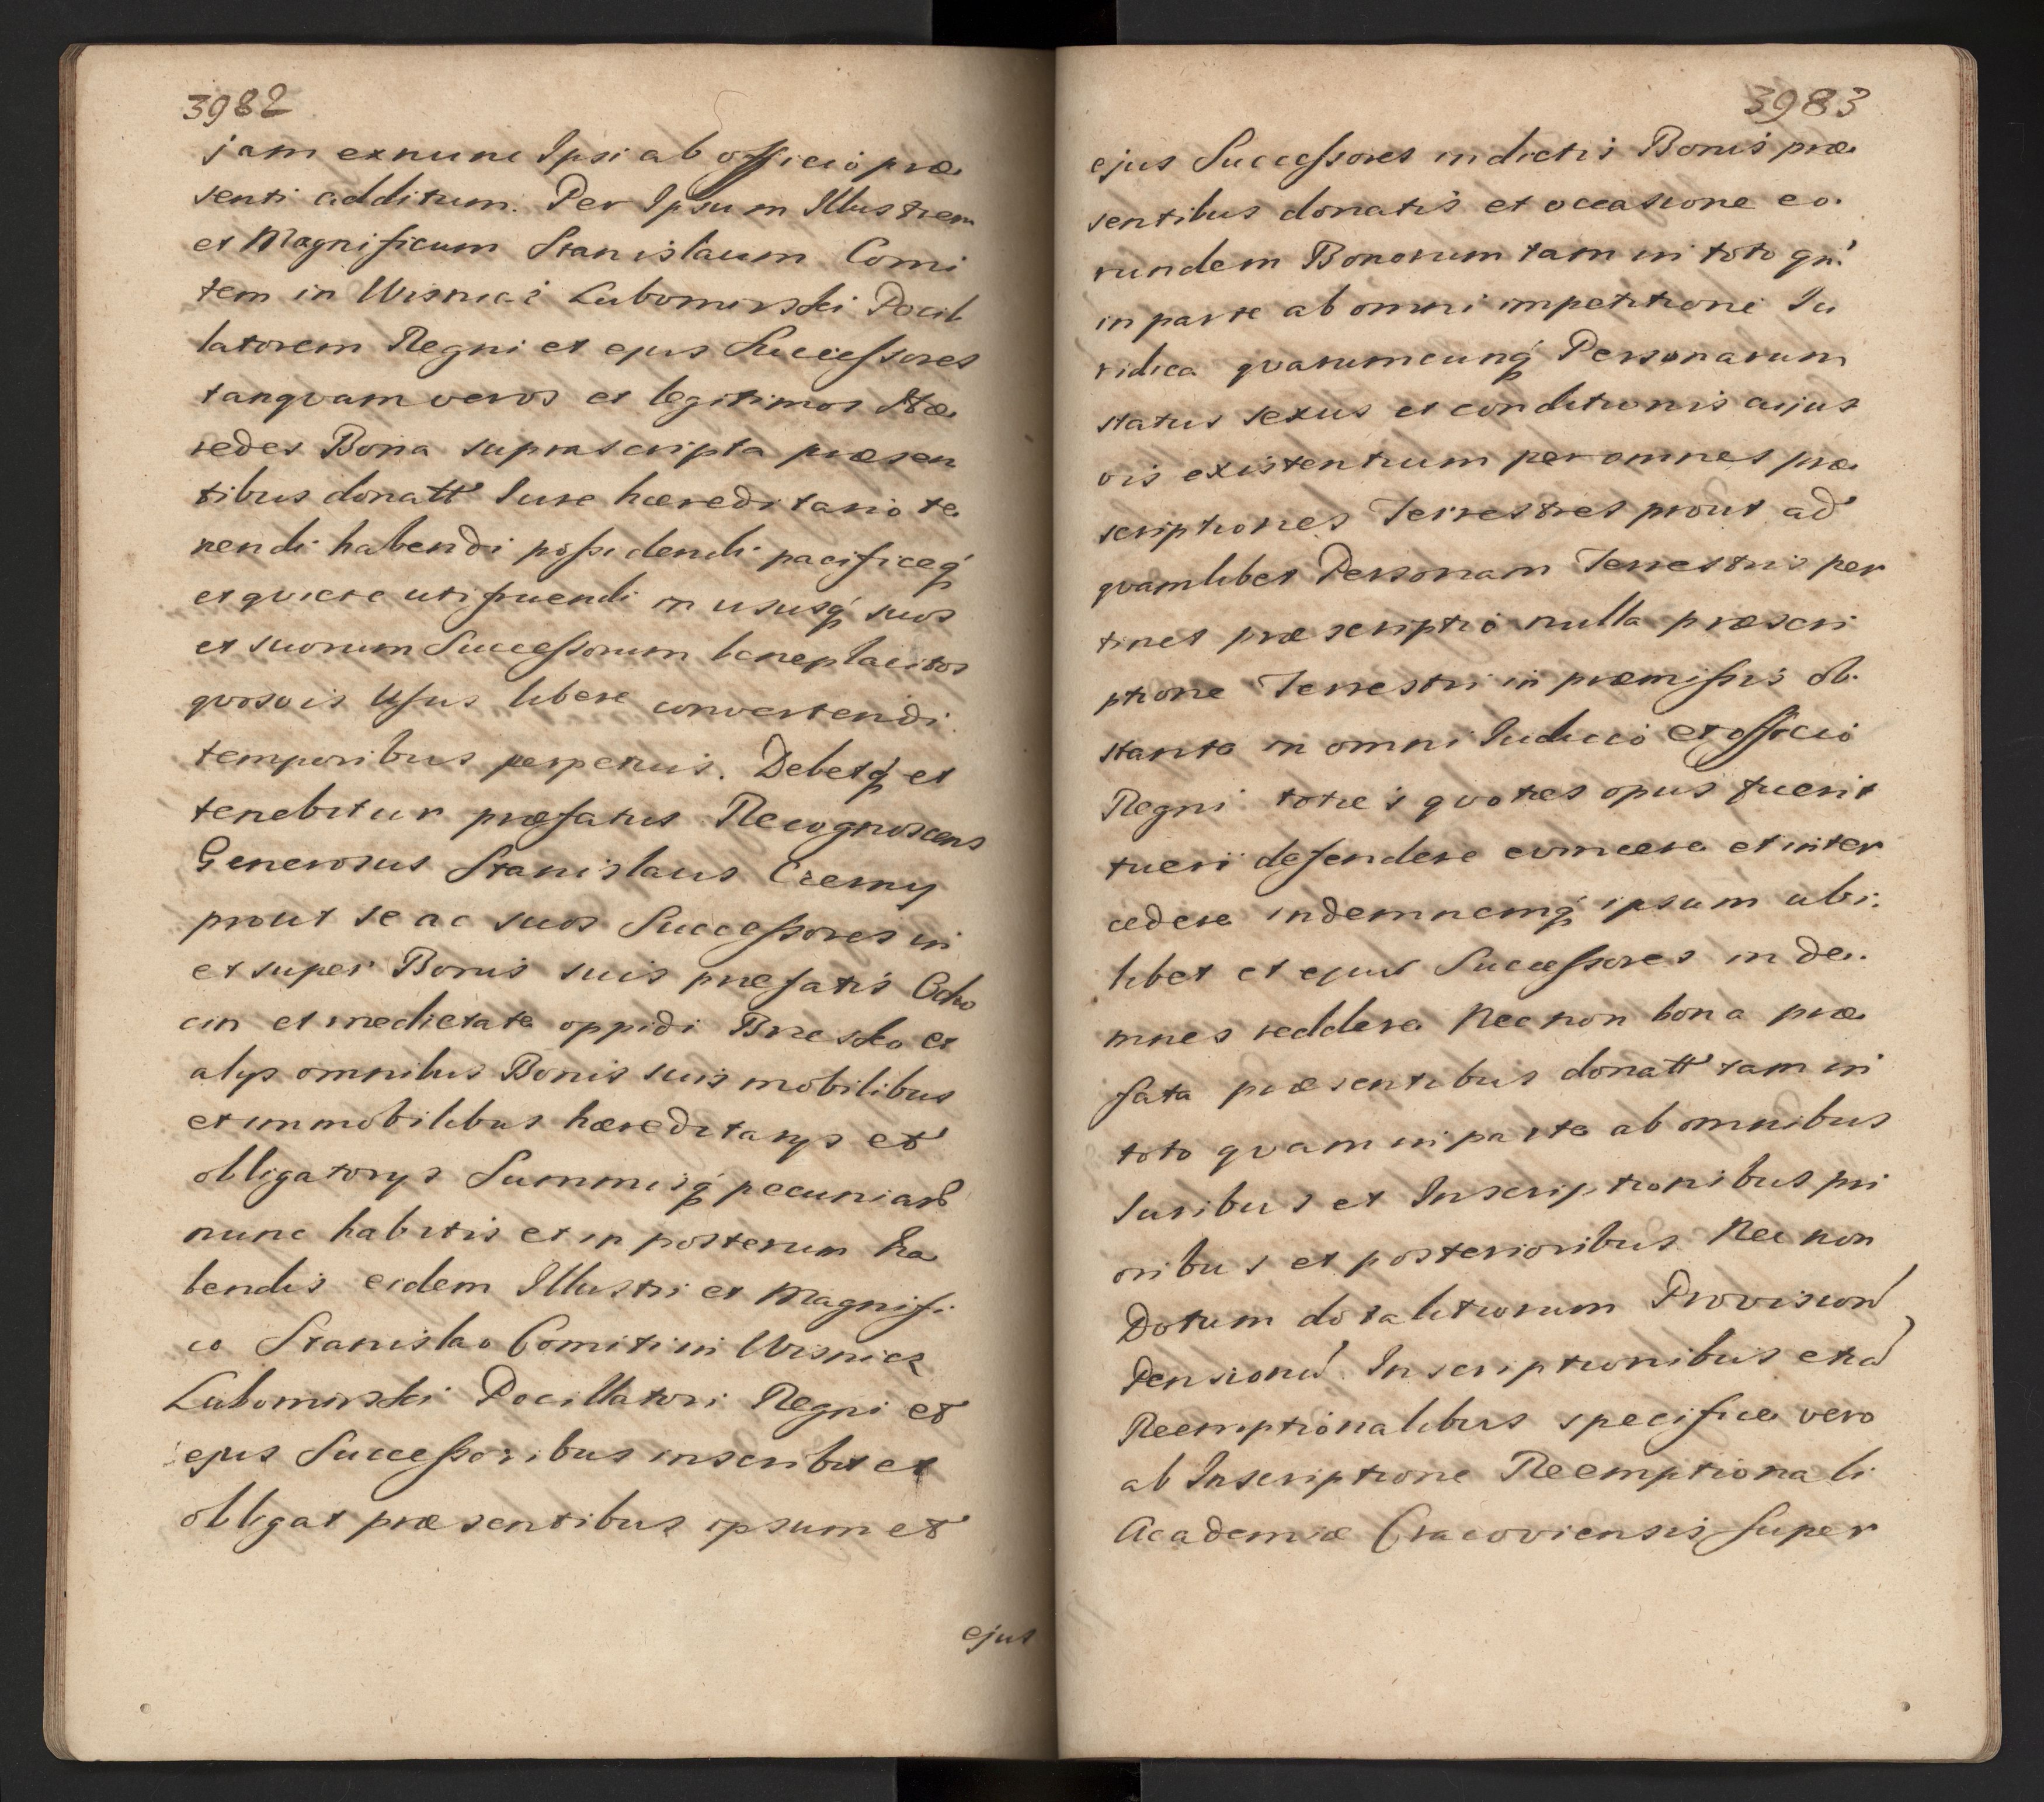 3982
jam exnunc Ipsi ab officio præ
senti additum. Per Ipsum Illustrem
et Magnificum Stanislaum Comi
tem in Wisnicz Lubomirski Pocil
latorem Regni et ejus Successores
tanqvam veros et legitimos Hæ
redes Bona suprascripta præsen
tibus donatt Jure hæreditario te
nendi habendi possidendi pacificeq́
et qviete utifruendi in ususq́ suos
et suorum Successorum beneplacitos
qvosvis Usus libere convertendi
temporibus perpetuis. Debetq́ et
tenebitur præfatus Recognoscens
Generosus Stanislaus Czerny
prout se ac suos Successores in
et super Bonis suis præfatis
cin et medietate oppidi Brzesko et
alys omnibus Bonis suis mobilibus
et immobilibus hæreditarys et
obligatorys Summisq́ pecuniar
nunc habitis et in posterum ha
bendis eidem Illustri et Magnifi
co Stanislao Comiti in Wisnicz
Lubomirski Pocillatori Regni et
ejus Successoribus inscribit et
obligat præsentibus ipsum et
ejus
3983
ejus Successores in dictis Bonis præ
sentibus donatis et occasione eo.
rundem Bonorum tam in toto qu̕
in parte ab omni impetitione Ju
ridica qvarumcunq́ Personarum
status sexus et conditionis cujus
vis existentium per omnes præ
scriptiones Terrestres prout ad
qvamlibet Personam Terrestris per
tinet præscriptio nulla præscri
ptione Terrestri in præmissis ob.
stante in omni Judicio et officio
Regni toties qvoties opus fuerit
tueri defendere evincere et inter
cedere indemnemq́ ipsum ubi.
libet et ejus Successores inde.
mnes reddere Necnon bona præ
fata præsentibus donatt tam in
toto qvam in parte ab omnibus
Juribus et Inscriptionibus pri
oribus et posterioribus Nec non
Dotum dotalitiorum Provision
Pension Inscriptionibus etia
Reemptionalibus specifice vero
ab Inscriptione Reemptionali
Academiæ Cracoviensis super